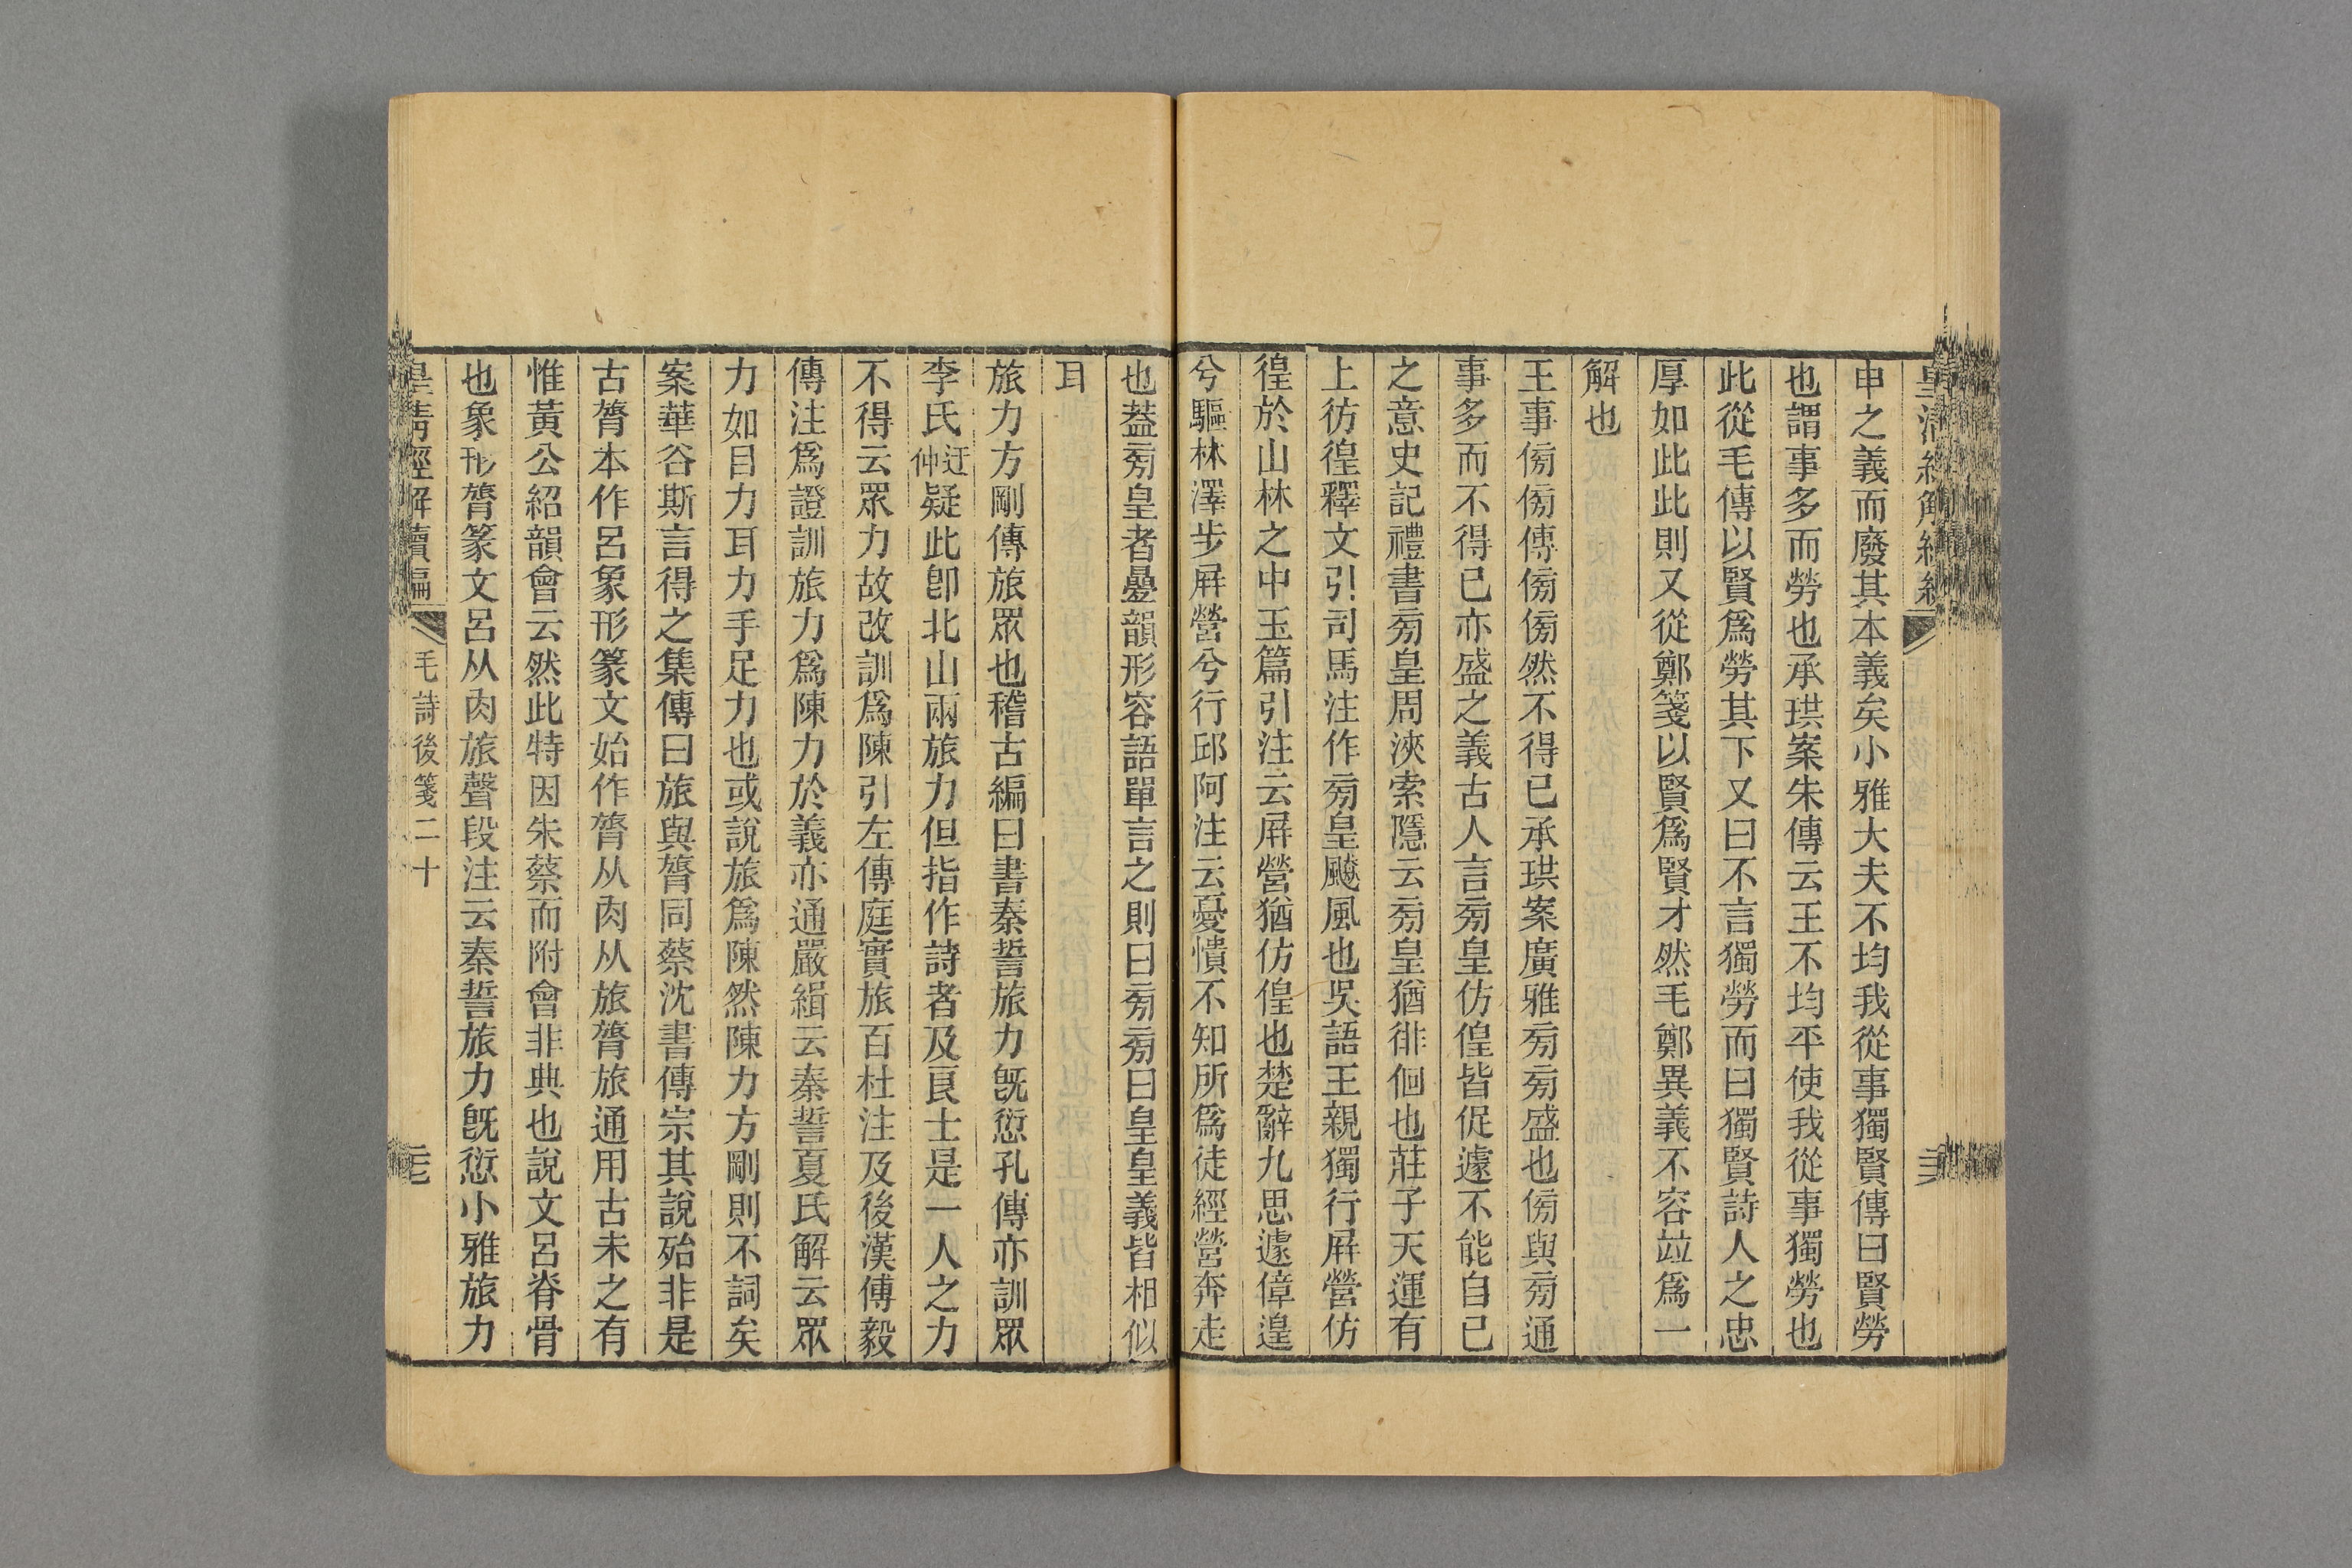 申之義而廢其本義矣小雅大夫不均我從事獨賢傳曰賢勞
也謂事多而勞也承珙案朱傳云王不均平使我從事獨勞也
此從毛傳以賢爲勞其下又曰不言獨勞而曰獨賢詩人之忠
厚如此此則又從鄭箋以賢爲賢才然毛鄭異義不容竝爲一
解也
王事傍傍傳傍傍然不得已承珙案廣雅㫄㫄盛也傍與㫄通
事多而不得已亦盛之義古人言㫄皇仿偟皆促遽不能自已
之意史記禮書㫄皇周浹索隱云㫄皇猶徘徊也莊子天運有
上彷徨釋文引司馬注作㫄皇颷風也吳語王親獨行屛營仿
徨於山林之中玉篇引注云屛營猶仿偟也楚辭九思遽傽遑
兮驅林澤步屛營兮行邱阿注云憂憒不知所爲徒經營奔走
也葢㫄皇者疊韻形容語單言之則曰㫄㫄曰皇皇義皆相似
耳
旅力方剛傳旅眾也稽古編曰書秦誓旅力旣愆孔傳亦訓眾
李氏迂仲疑此卽北山兩旅力但指作詩者及良士是一人之力
不得云眾力故改訓爲陳引左傳庭實旅百杜注及後漢傅毅
傳注爲證訓旅力爲陳力於義亦通嚴緝云秦誓夏氏解云眾
力如目力耳力手足力也或說旅爲陳然陳力方剛則不詞矣
案華谷斯言得之集傳曰旅與膂同蔡沈書傳宗其說殆非是
古膂本作呂象形篆文始作膂从肉从旅膂旅通用古未之有
惟黃公紹韻會云然此特因朱蔡而附會非典也說文呂脊骨
也象形膂篆文呂从肉旅聲段注云秦誓旅力旣愆小雅旅力
皇淸經解續編 毛詩後箋二十